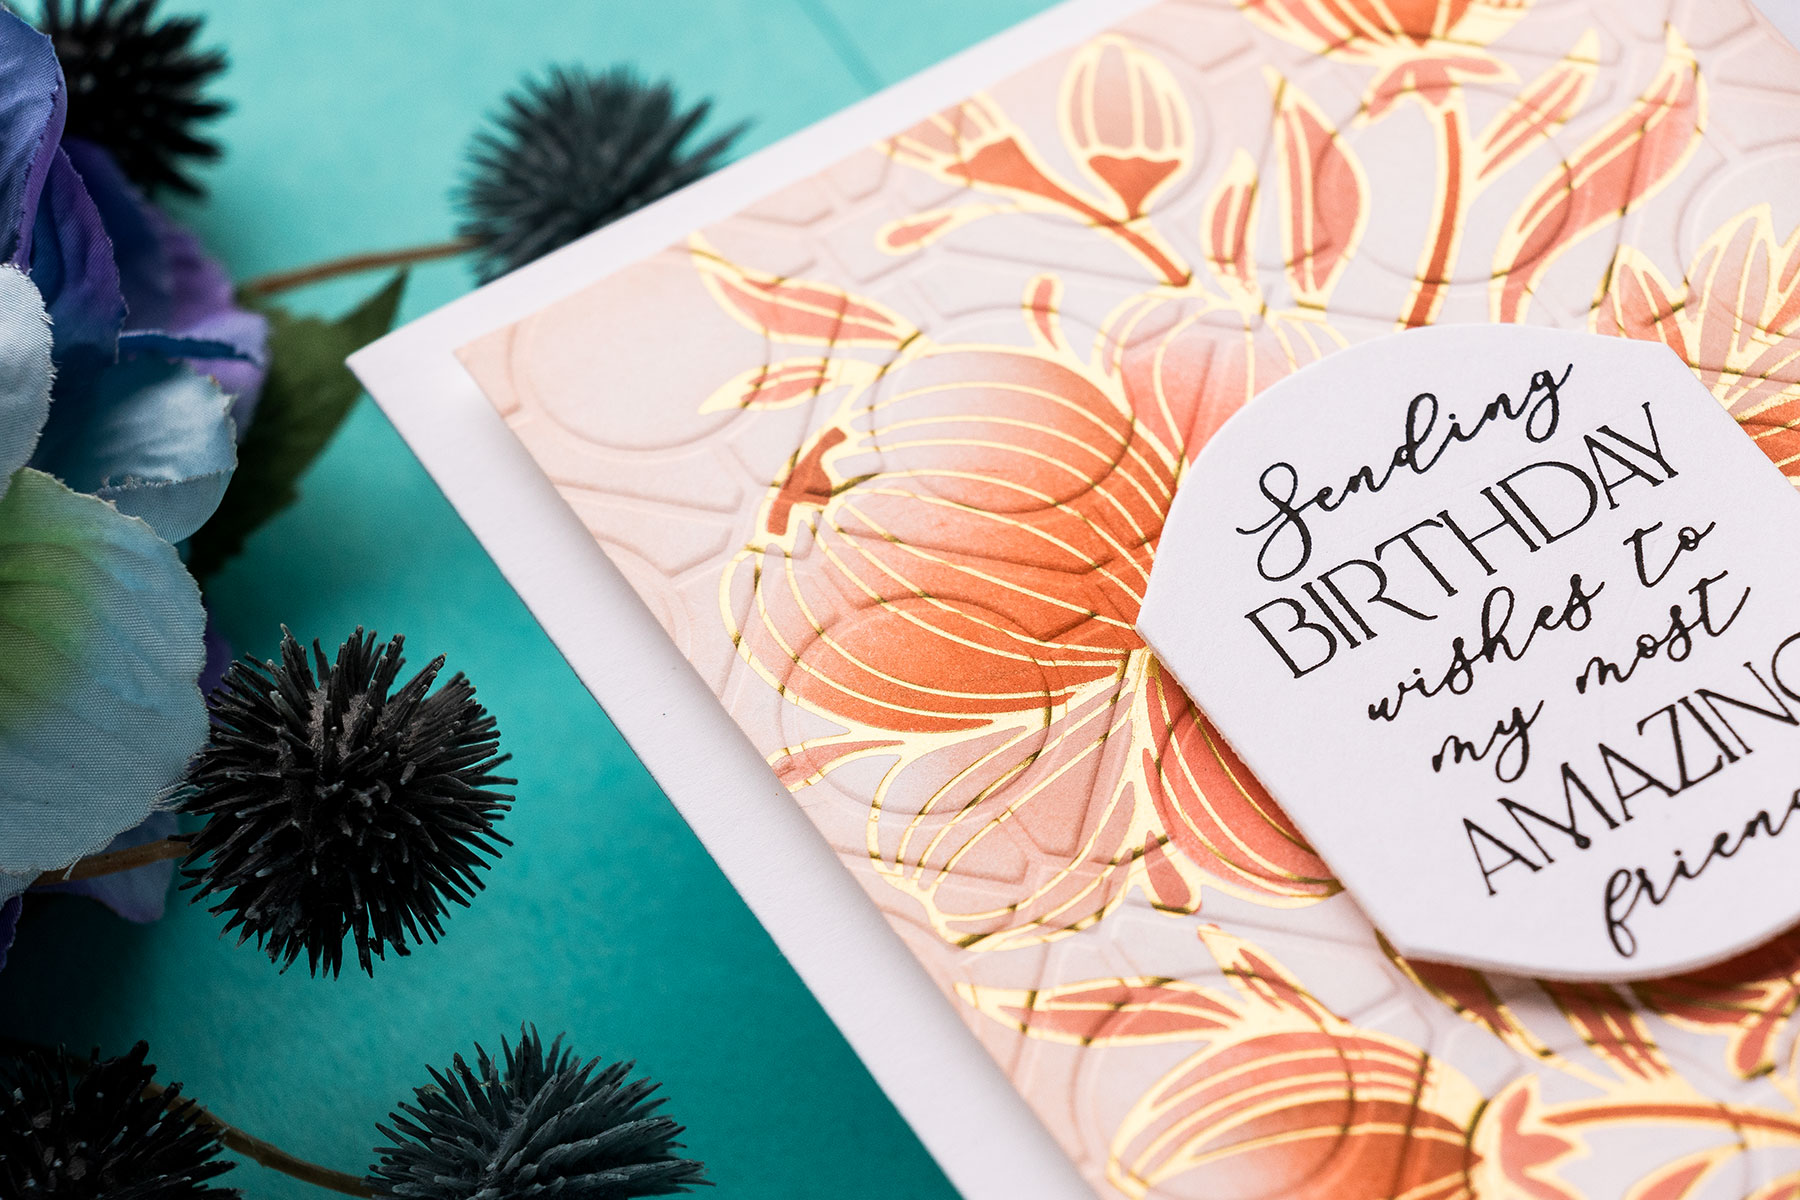 Sending
BIRTHDAY
wishes to
my most
AMAZING
friend